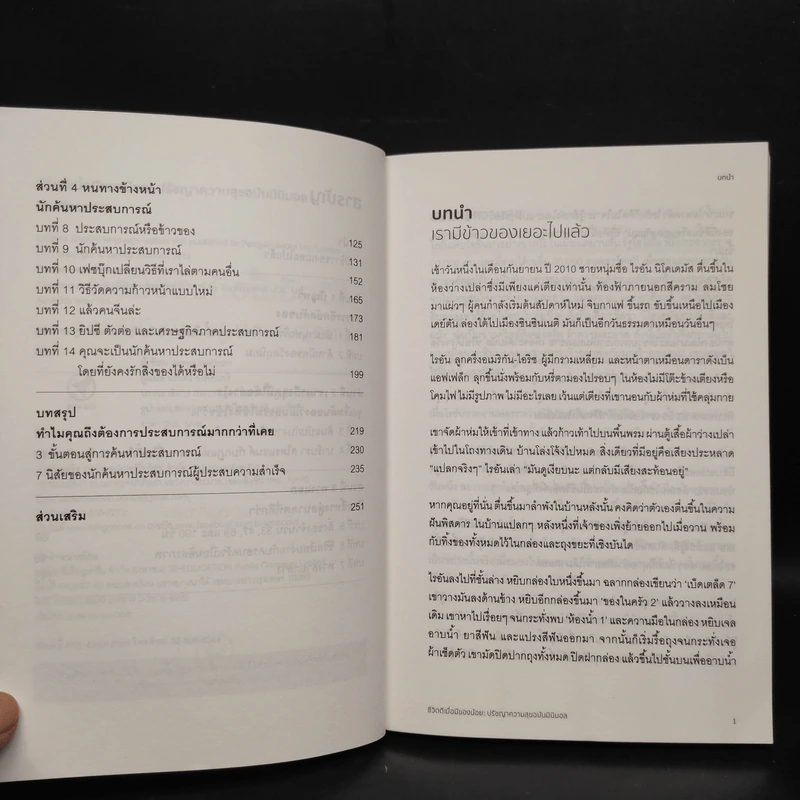 ส่วนที่ 4 หนทางข้างหน้า
นักค้นหาประสบการณ์
บทที่ 8 ประสบการณ์หรือข้าวของ 125
บทที่ 9 นักค้นหาประสบการณ์ 131
บทที่ 10 เฟซบุ๊กเปลี่ยนวิธีที่เราไล่ตามคนอื่น 152
บทที่ 11 วิธีวัดความก้าวหน้าแบบใหม่ 165
บทที่ 12 แล้วคนจีนล่ะ 173
บทที่ 13 ยิปซี ตัวต่อ และเศรษฐกิจภาคประสบการณ์ 181
บทที่ 14 คุณจะเป็นนักค้นหาประสบการณ์
โดยที่ยังคงรักสิ่งของได้หรือไม่ 199
บทสรุป
ทำไมคุณถึงต้องการประสบการณ์มากกว่าที่เคย 219
3 ขั้นตอนสู่การค้นหาประสบการณ์ 230
7 นิสัยของนักค้นหาประสบการณ์ผู้ประสบความสำเร็จ 235
ส่วนเสริม 251
บทนำ
บทนำ
เรามีข้าวของเยอะไปแล้ว
เช้าวันหนึ่งในเดือนกันยายน ปี 2010 ชายหนุ่มชื่อ ไรอัน นิโคเดมัส ตื่นขึ้นใน
ห้องว่างเปล่าซึ่งมีเพียงแค่เตียงเท่านั้น ท้องฟ้าภายนอกสีคราม ลมโชย
มาแผ่วๆ ผู้คนกำลังเริ่มต้นสัปดาห์ใหม่ จิบกาแฟ ขึ้นรถ ขับขึ้นเหนือไปเมือง
เดย์ตัน ล่องใต้ไปเมืองซินซินเนติ มันก็เป็นอีกวันธรรมดาเหมือนวันอื่นๆ
ไรอัน ลูกครึ่งอเมริกัน-ไอริช ผู้มีกรามเหลี่ยม และหน้าตาเหมือนดาราดังเบ็น
แอฟเฟล็ก ลุกขึ้นนั่งพร้อมกับหรี่ตามองไปรอบๆ ในห้องไม่มีโต๊ะข้างเตียงหรือ
โคมไฟ ไม่มีรูปภาพ ไม่มีอะไรเลย เว้นแต่เตียงที่เขานอนกับผ้าห่มที่ใช้คลุมกาย
เขาจัดผ้าห่มให้เข้าที่เข้าทาง แล้วก้าวเท้าไปบนพื้นพรม ผ่านตู้เสื้อผ้าว่างเปล่า
เข้าไปในโถงทางเดิน บ้านโล่งโจ้งไปหมด สิ่งเดียวที่มีอยู่คือเสียงประหลาด
“แปลกจริงๆ” ไรอันเล่า “มันดูเงียบนะ แต่กลับมีเสียงสะท้อนอยู่”
หากคุณอยู่ที่นั่น ตื่นขึ้นมาลำพังในบ้านหลังนั้น คงคิดว่าตัวเองตื่นขึ้นในความ
ฝันพิสดาร ในบ้านแปลกๆ หลังหนึ่งที่เจ้าของเพิ่งย้ายออกไปเมื่อวาน พร้อม
กับทิ้งของทั้งหมดไว้ในกล่องและถุงขยะที่เชิงบันได
ไรอันลงไปที่ชั้นล่าง หยิบกล่องใบหนึ่งขึ้นมา ฉลากกล่องเขียนว่า ‘เบ็ดเตล็ด 7’
เขาวางมันลงด้านข้าง หยิบอีกกล่องขึ้นมา ‘ของในครัว 2’ แล้ววางลงเหมือน
เดิม เขาหาไปเรื่อยๆ จนกระทั่งพบ ‘ห้องน้ำ 1’ และควานมือในกล่อง หยิบเจล
อาบน้ำ ยาสีฟัน และแปรงสีฟันออกมา จากนั้นก็เริ่มรื้อถุงจนกระทั่งเจอ
ผ้าเช็ดตัว เขามัดปิดปากถุงทั้งหมด ปิดฝากล่อง แล้วขึ้นไปชั้นบนเพื่ออาบน้ำ
ชีวิตดีเมื่อมีของน้อยๆ: ปรัชญาความสุขฉบับมินิมอล 1